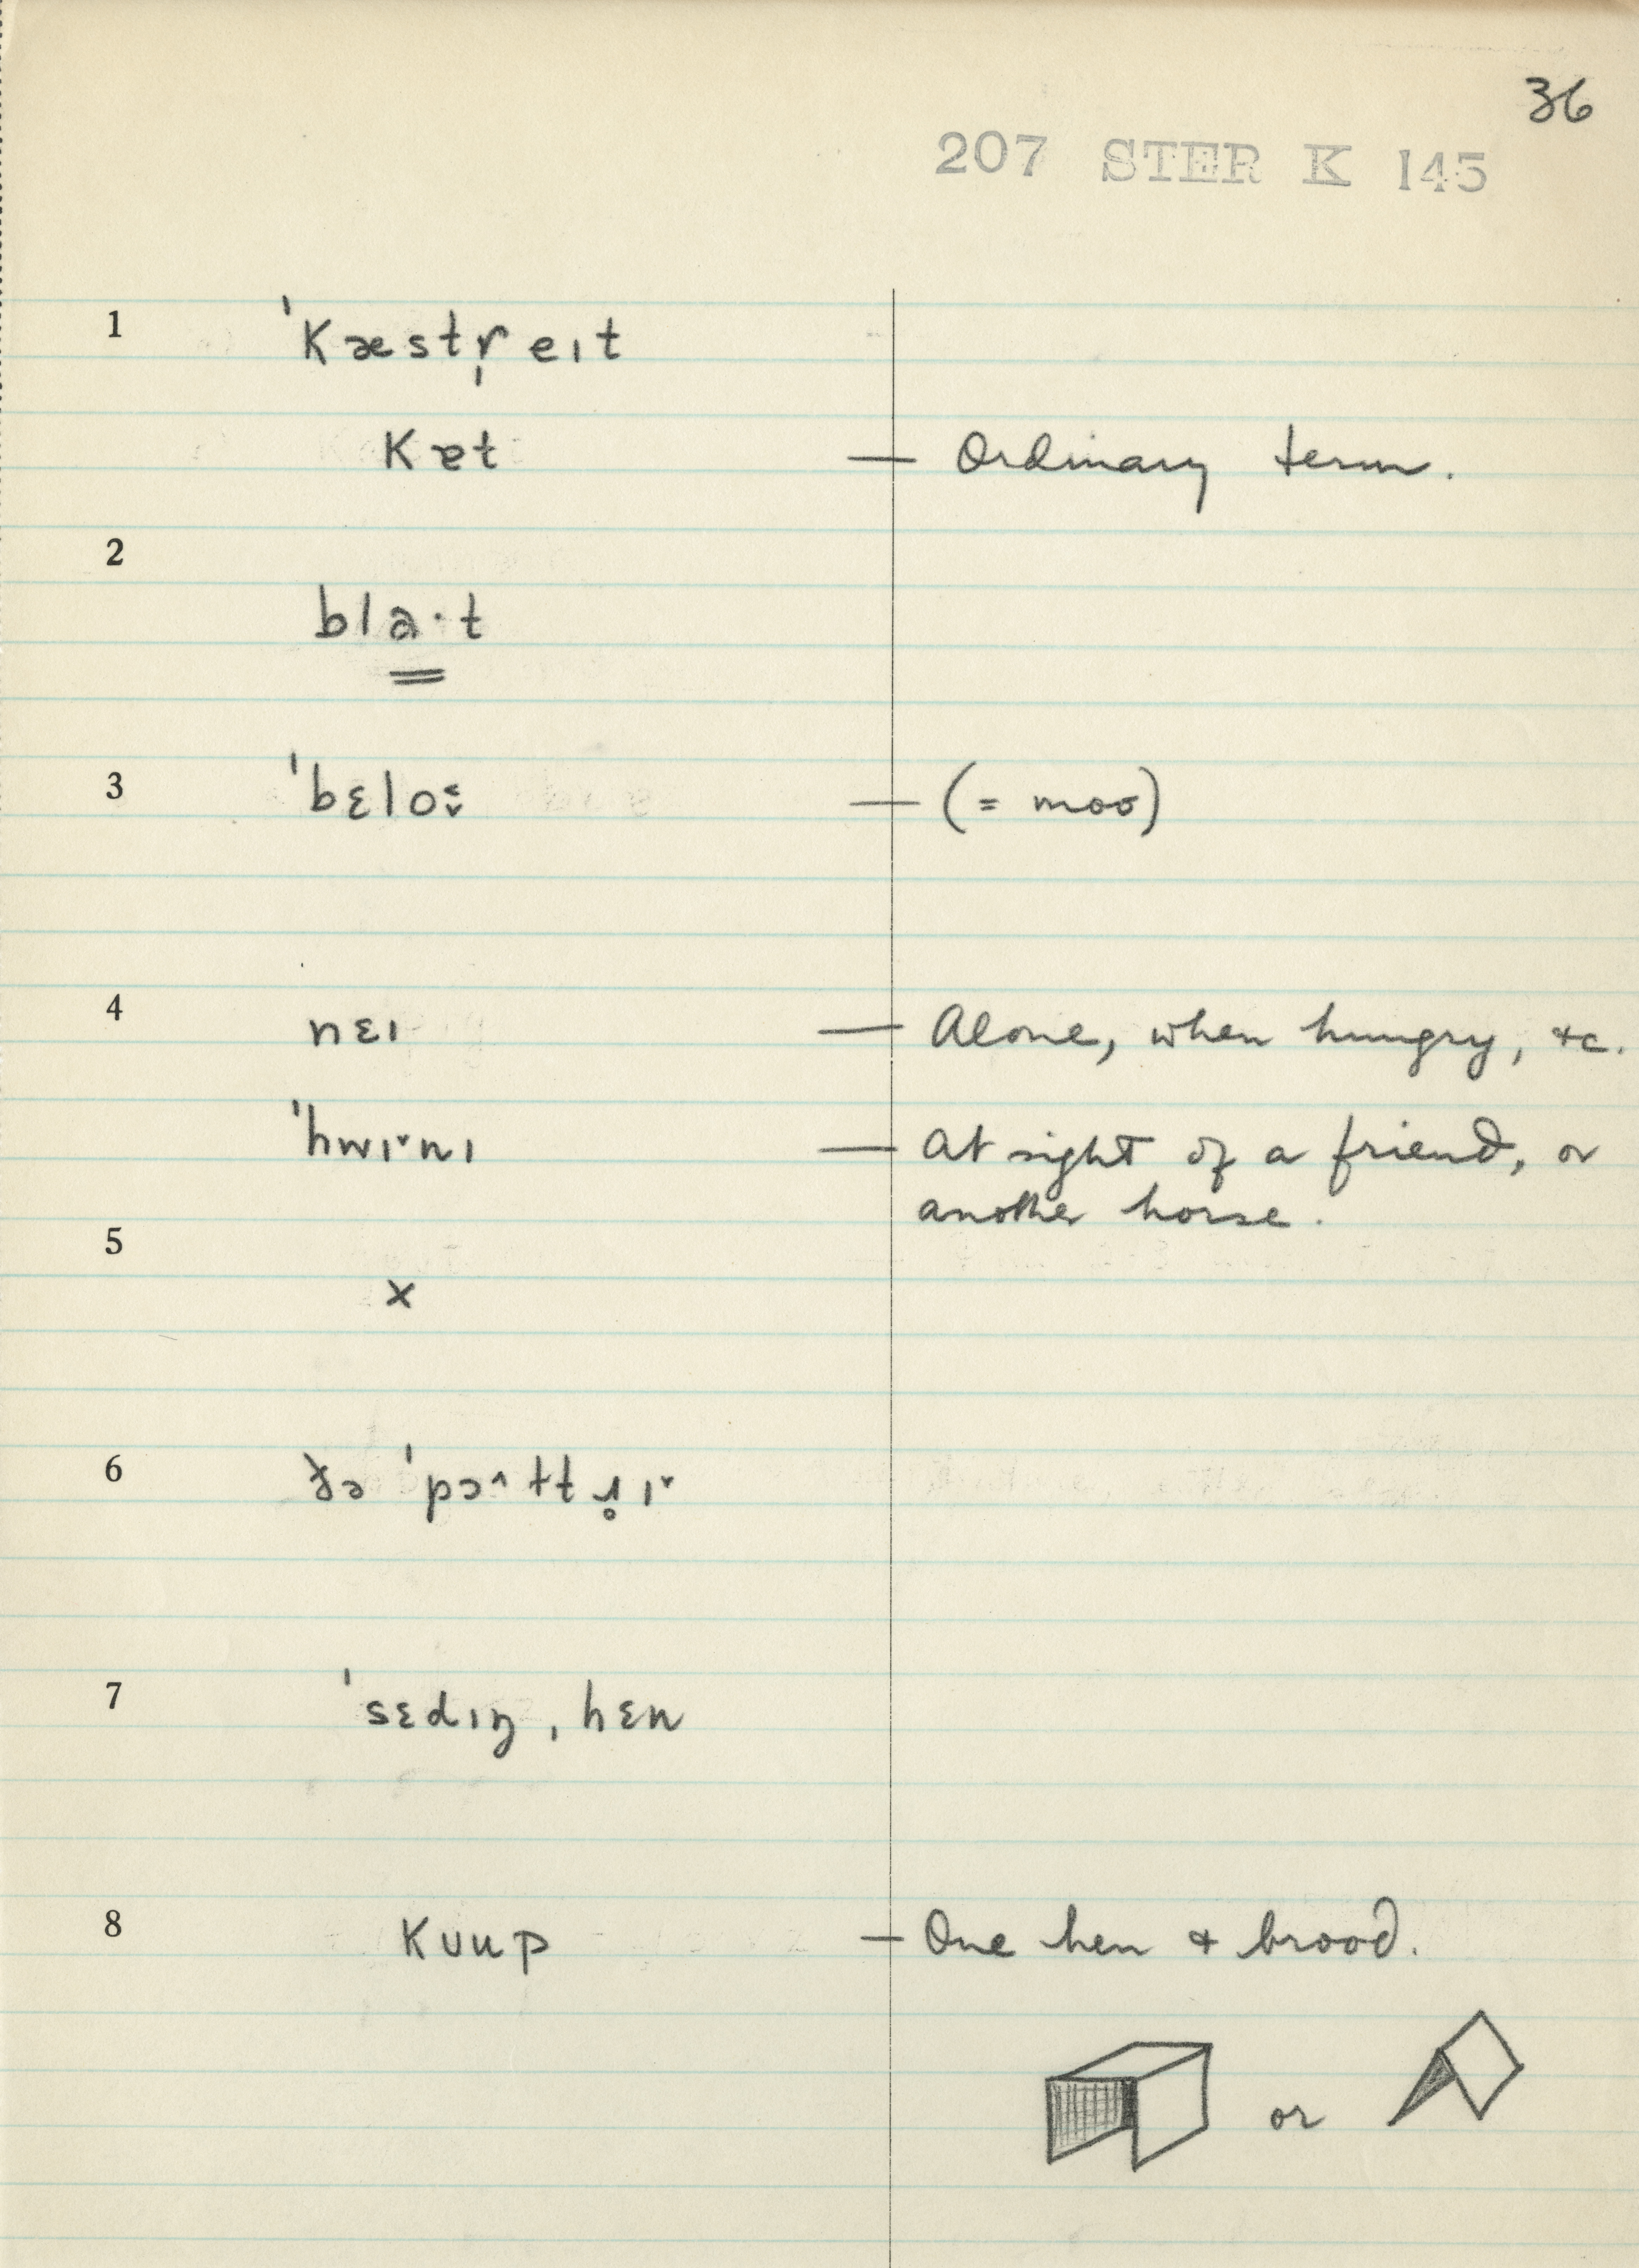 36
207 STER K 145
1 ˈkæstr̩eɪt
kæt — Ordinary term.
2
bla·t
3 ˈbɛlo — (= moo)
4 nɛɪ — Alone, when hungry, &c.
ˈhwɪ˅nɪ — At sight of a friend, or
another horse.
5
x
6 ðə ˈpɔ^ltɹ̥ɪ˅
7 ˈsɛdɪŋ, hɛn
8 kuup — One hen & brood.
or